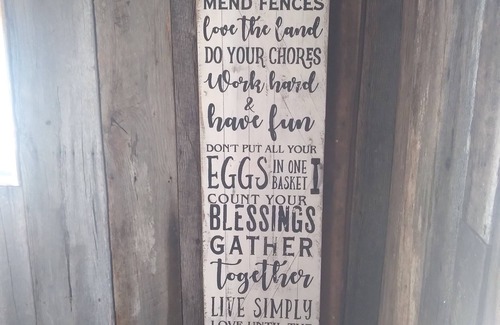 MEND FENCES
love the land
DO YOUR CHORES
Work hard
&
have fun
DON'T PUT ALL YOUR
EGGS IN ONE BASKET I
COUNT YOUR
BLESSINGS
GATHER
together
LIVE SIMPLY
LOVE UNTIL THE